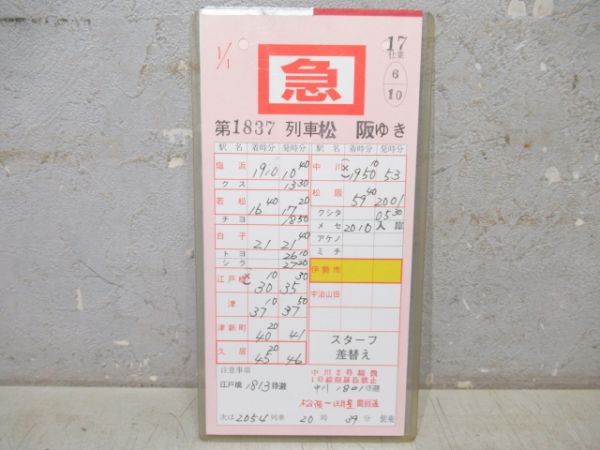 1/1
17
仕業
6
10
急
第1837 列車松 阪ゆき
駅名 着時分 発時分 駅名 着時分 発時分
塩浜 1910 10 40 中川 1950 10 53
クス 13 30 松阪 59 40 2001
若松 16 40 17 20 クシタ 05 30
チヨ 18 50 メセ 2010 入庫
白子 21 21 40 アケノ
トヨ 26 10 ミチ
シラ 27 20 伊勢市
江戸橋 30 10 35 30 宇治山田
津 37 10 37 50
津新町 40 20 41
久居 45 20 46
スターフ
差替え
注意事項
江戸橋 1813待避
中川 1801待避
次は 2054 列車 20 時 89 分 乗